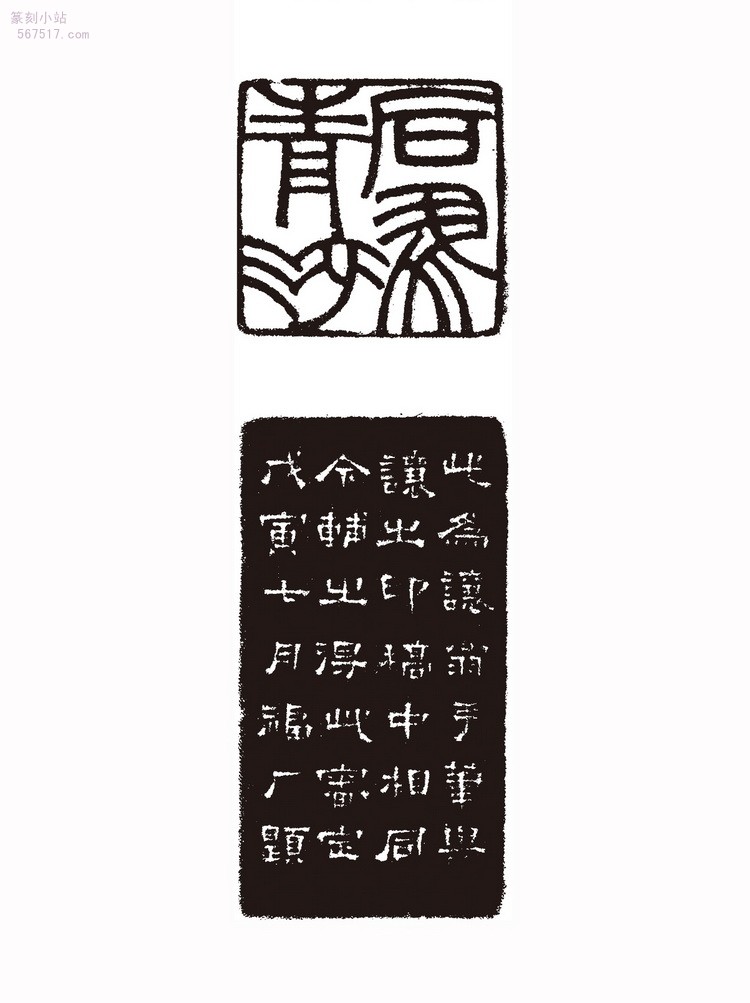 篆刻小站
567517.com
青沙
此為讓翁手筆與
讓之印稿中相同
今輔之得此審定
戊寅七月福厂題